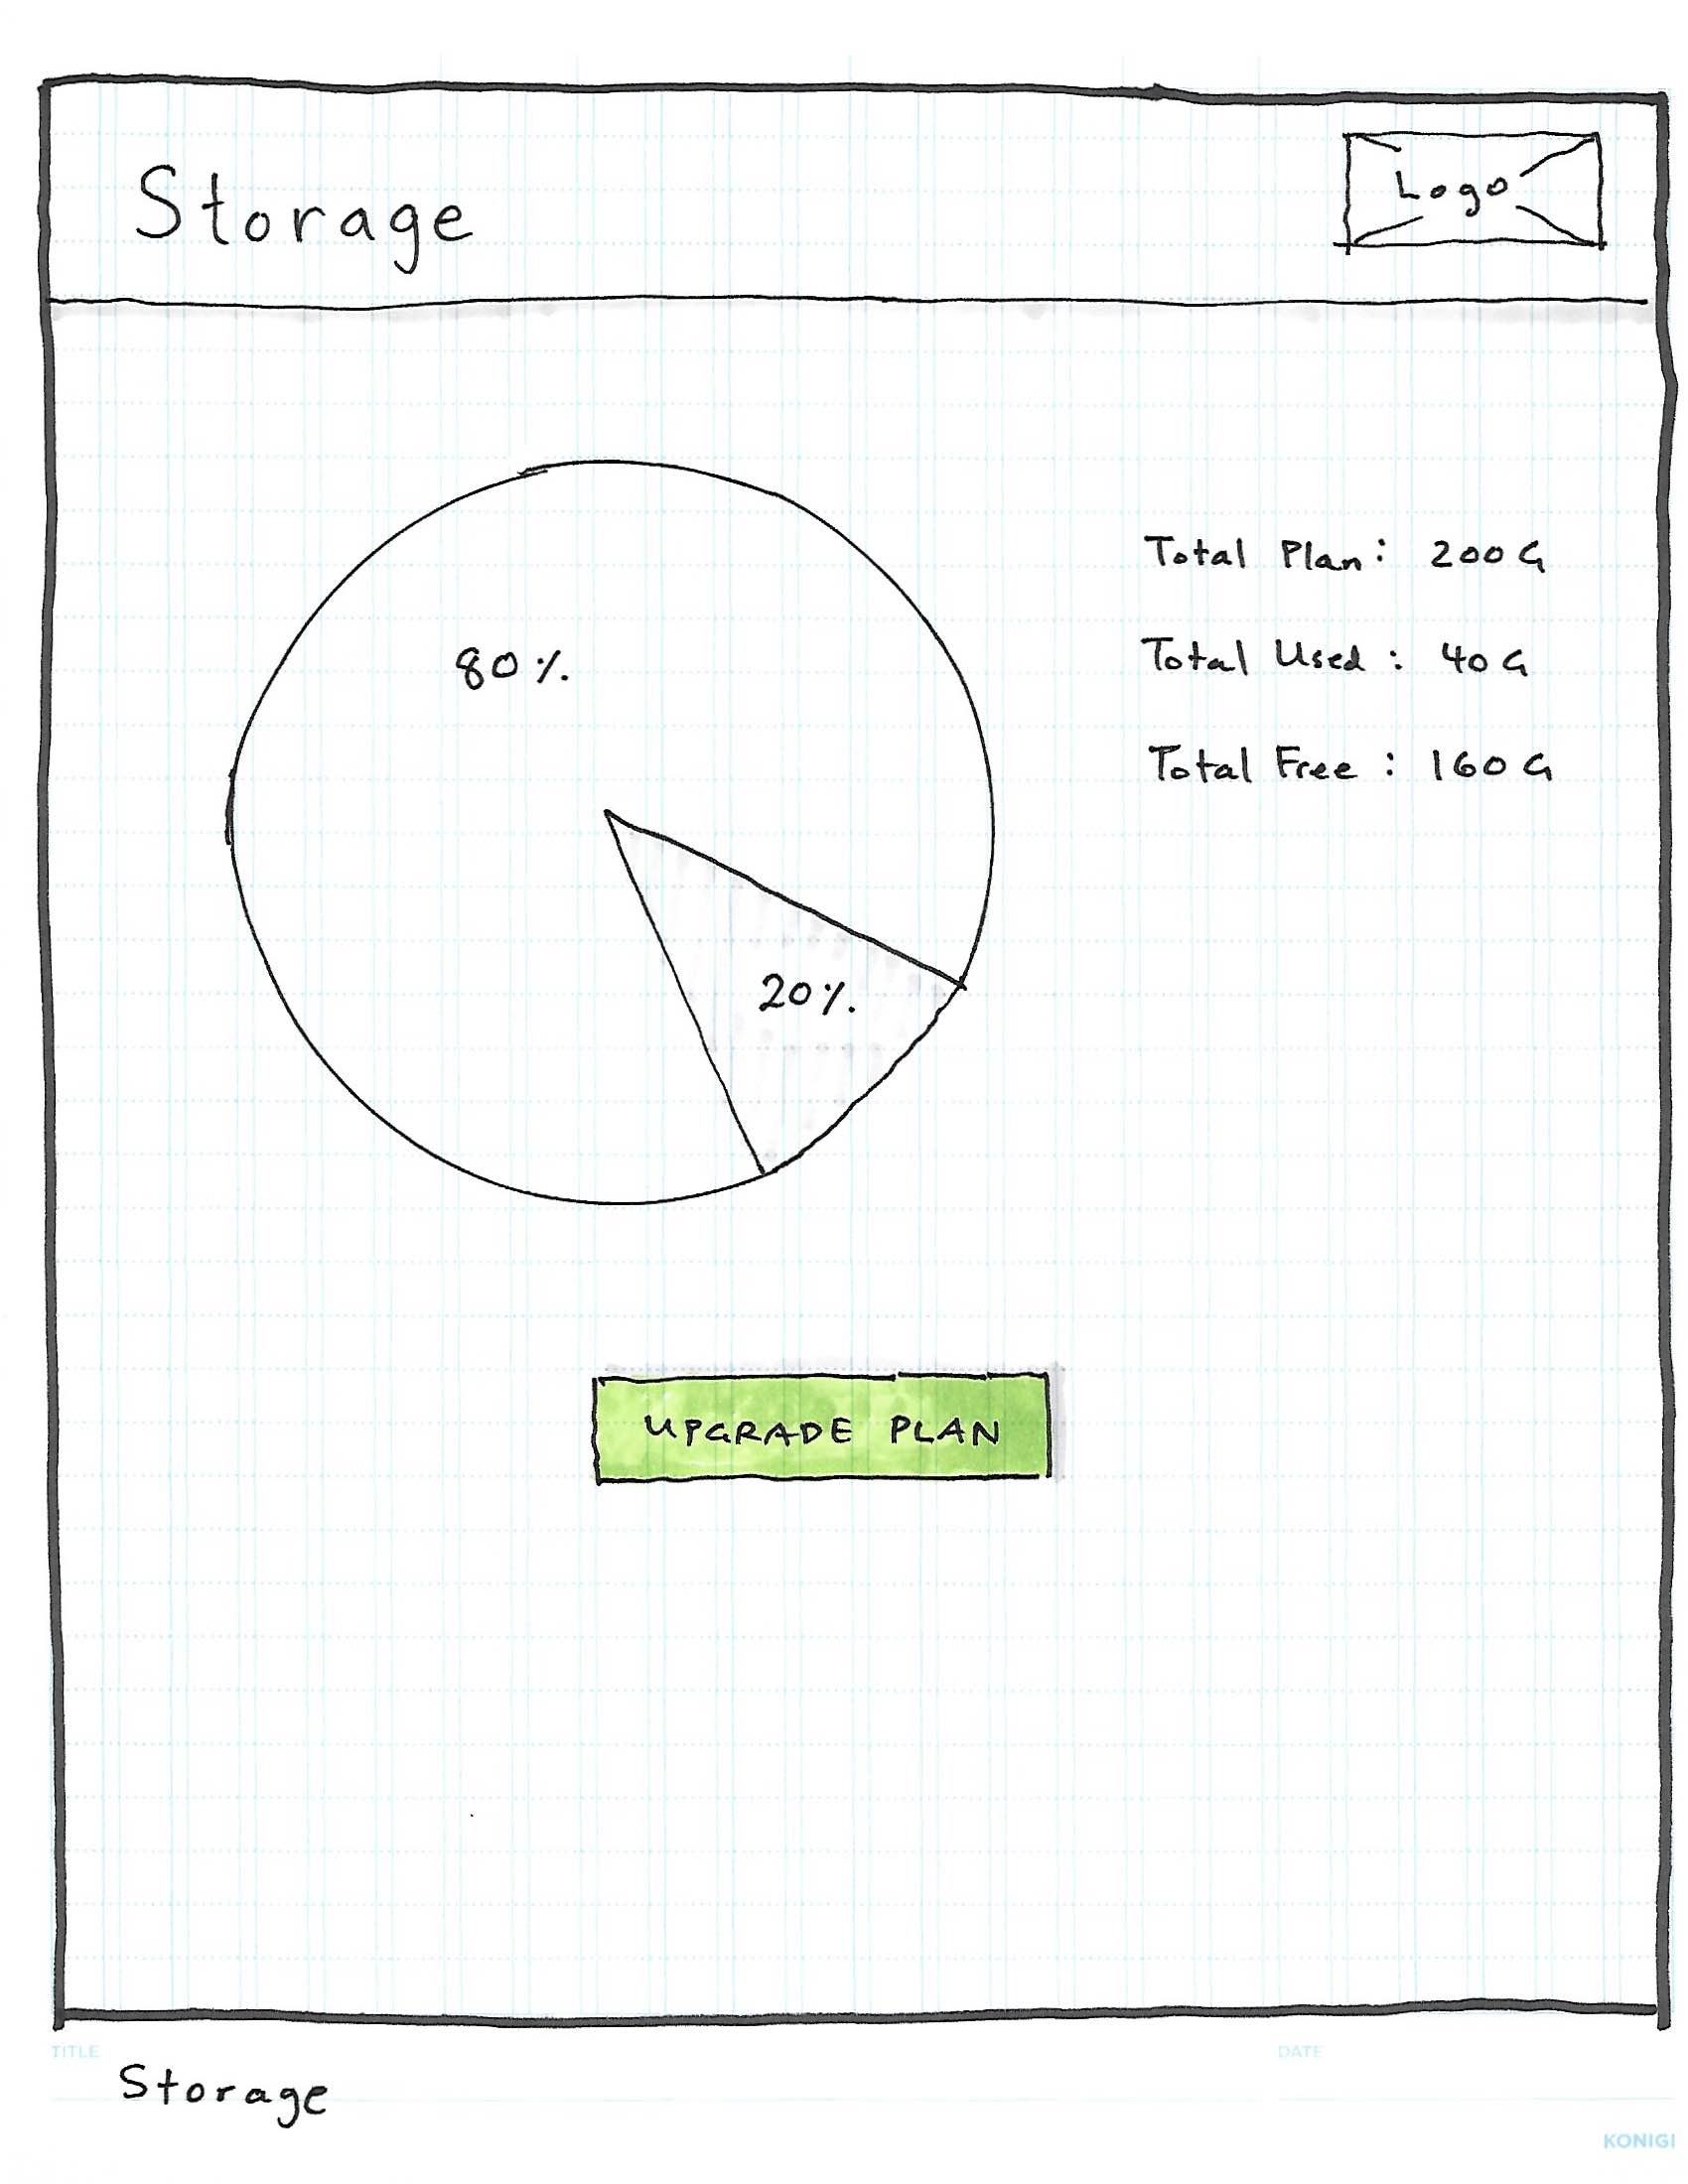 Storage
Logo
80%
20%
Total Plan: 200G
Total Used: 40G
Total Free: 160G
UPGRADE PLAN
TITLE
DATE
Storage
KONIGI